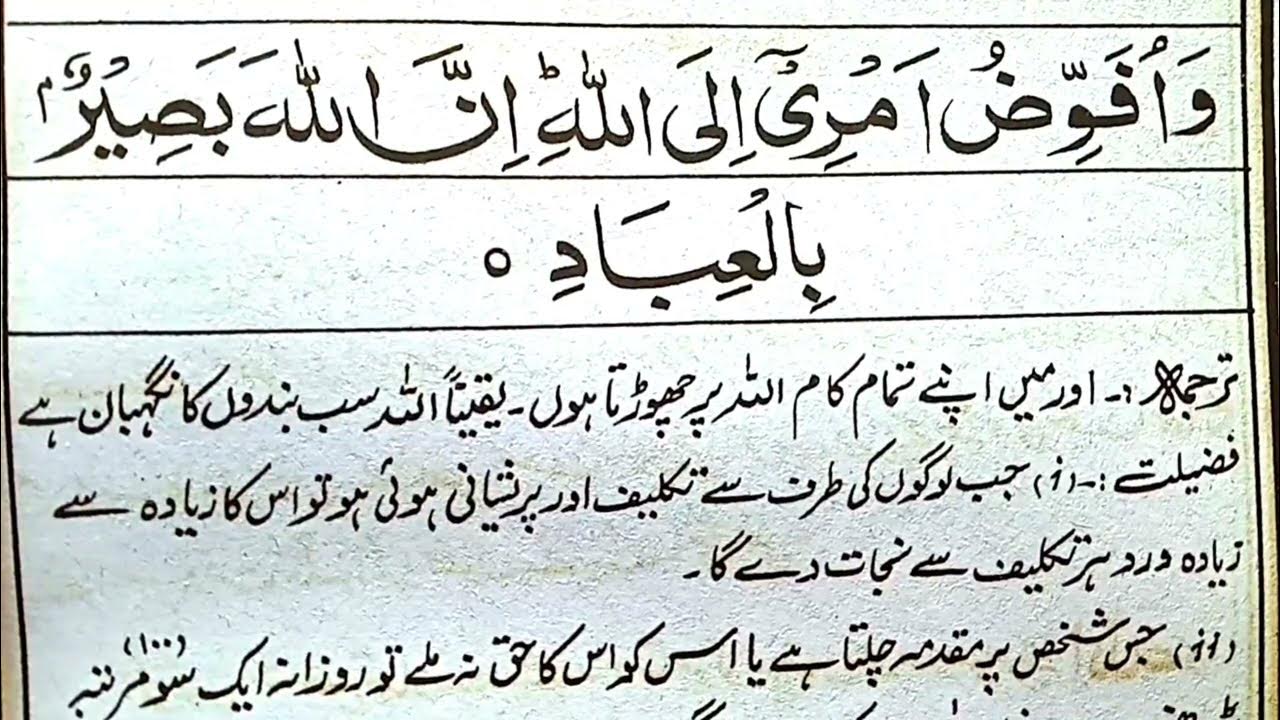 وَاُفَوِّضُ اَمْرِیْۤ اِلَی اللّٰهِؕ اِنَّ اللّٰهَ بَصِیْرٌۢ
بِالْعِبَادِ ○
ترجمہ :۔ اور میں اپنے تمام کام اللہ پر چھوڑتا ہوں۔ یقیناً اللہ سب بندوں کا نگہبان ہے
فضیلت :۔ (i) جب لوگوں کی طرف سے تکلیف اور پریشانی ہوئی ہو تو اس کا زیادہ سے
زیادہ ورد ہر تکلیف سے نجات دے گا۔
(ii) جس شخص پر مقدمہ چلتا ہے یا اس کو اس کا حق نہ ملے تو روزانہ ایک سو (۱۰۰) مرتبہ